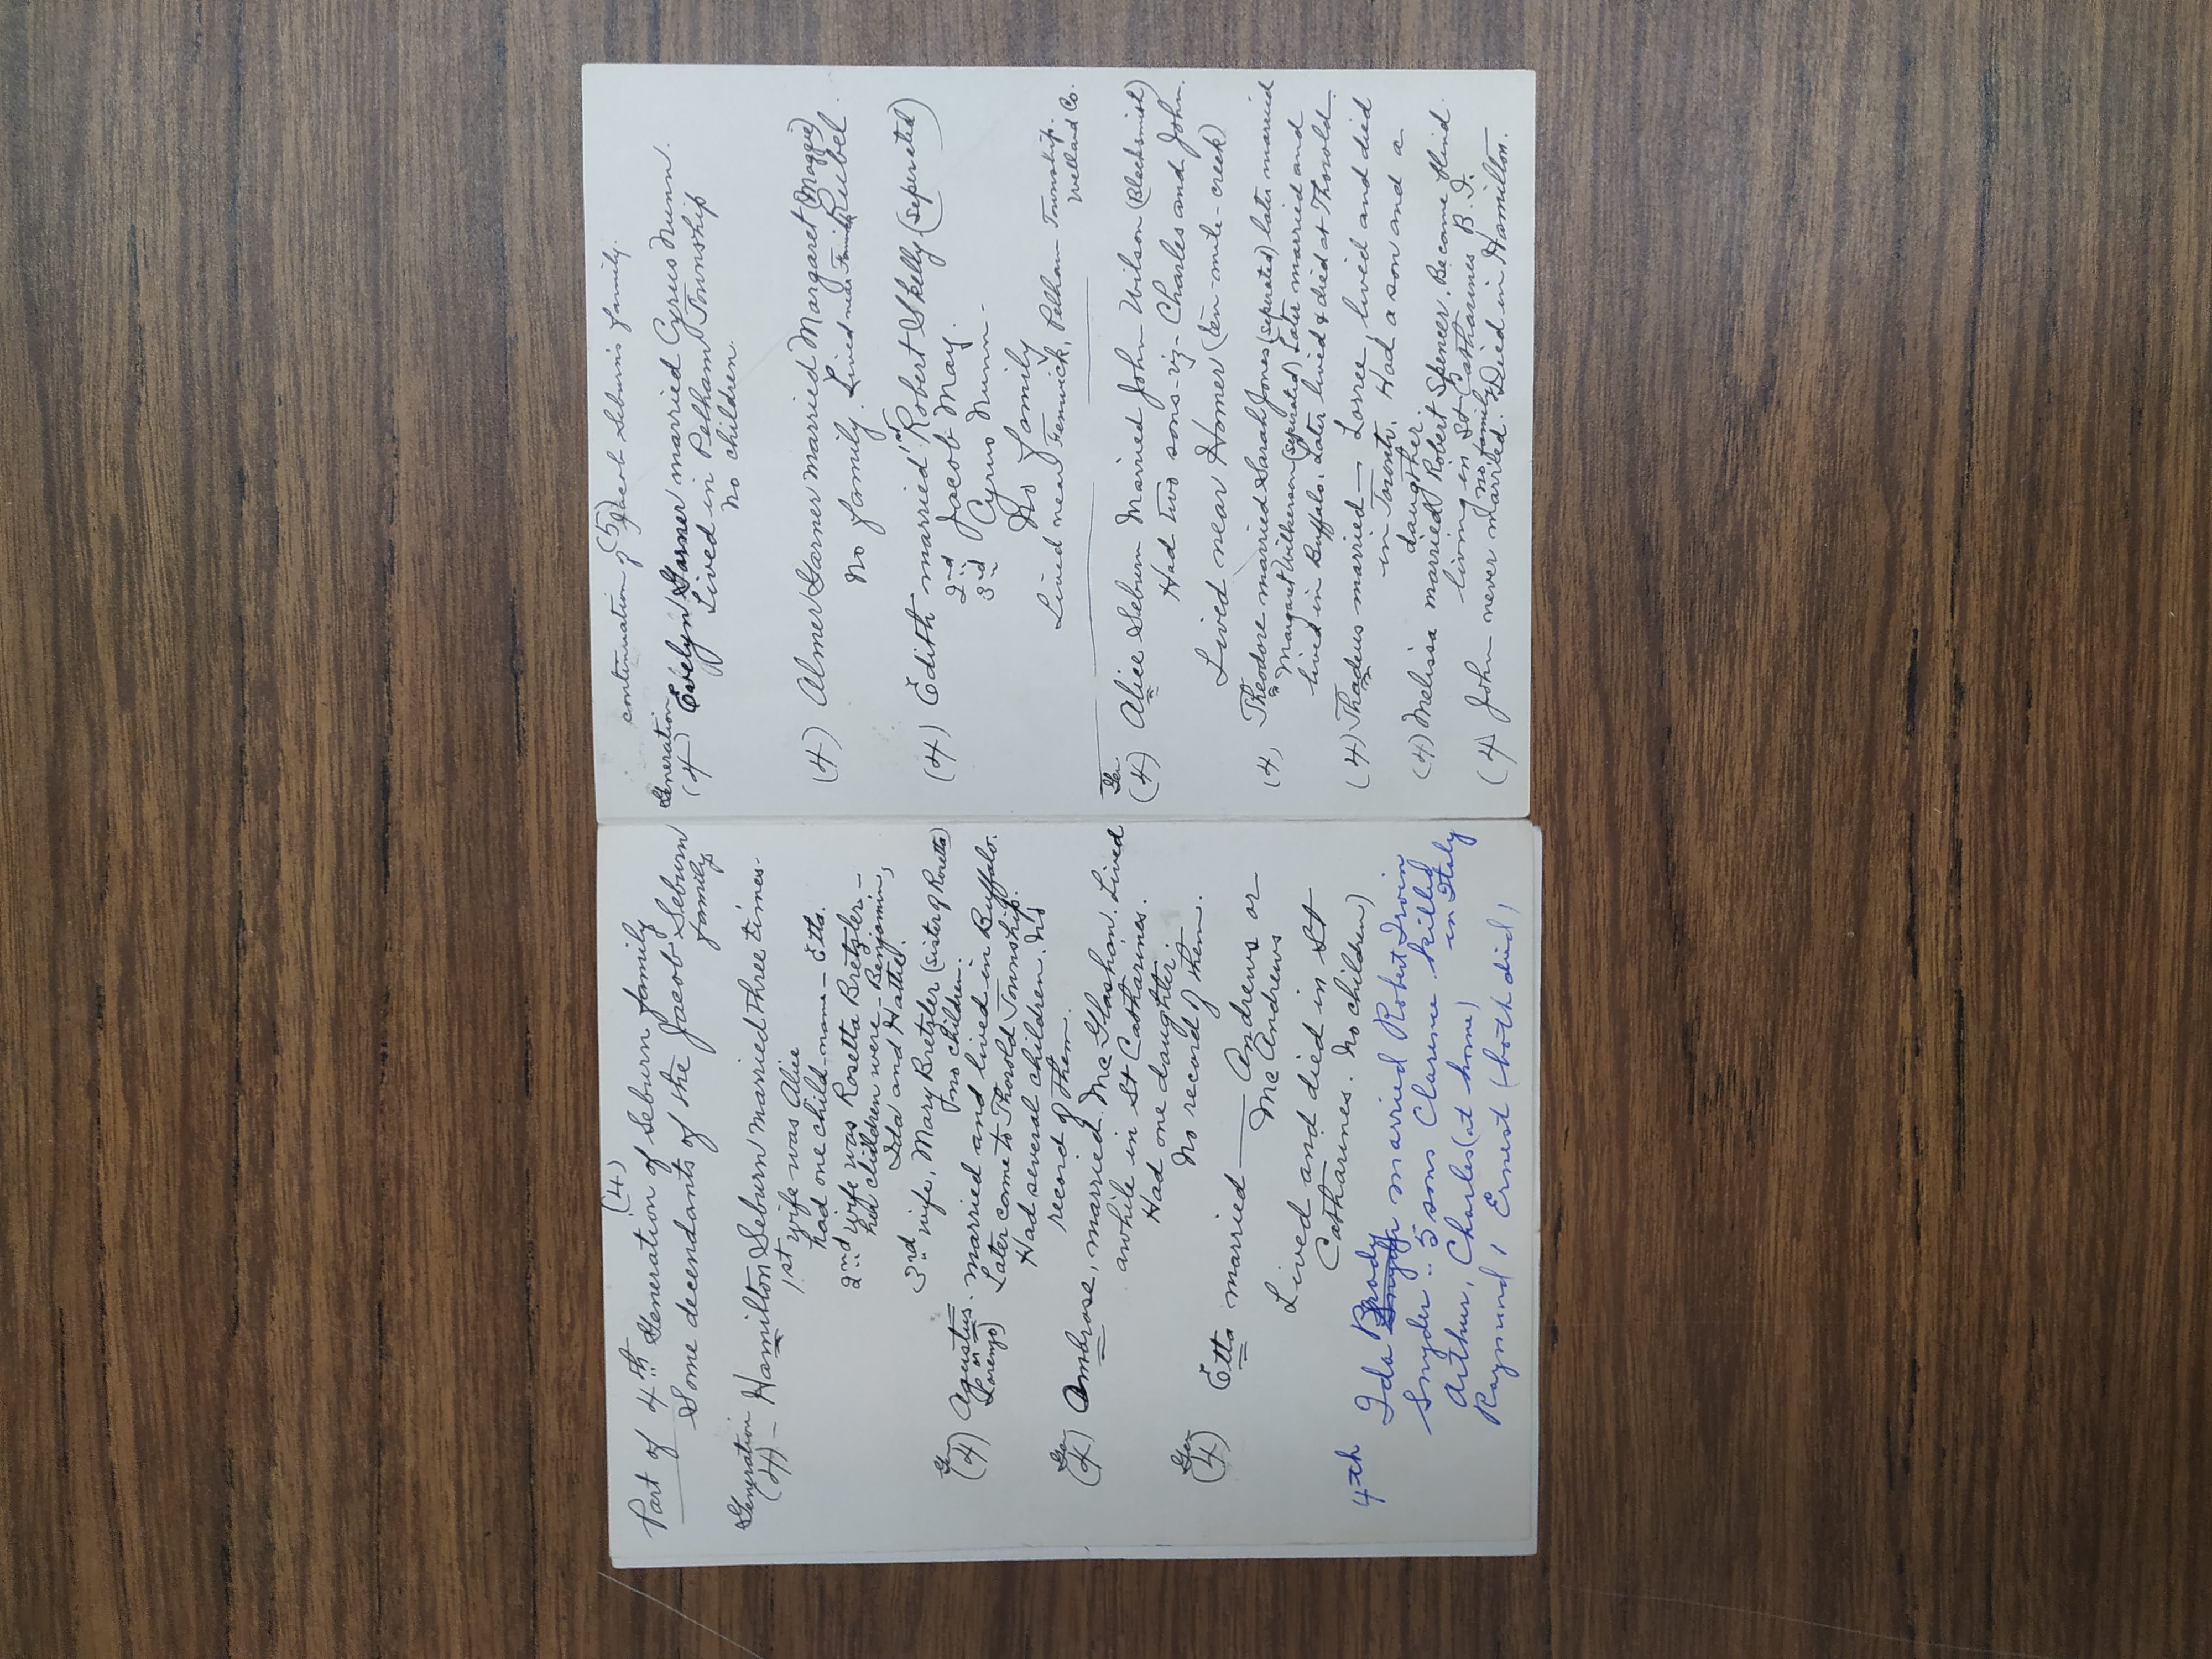 (4)
Part of 4th Generation of Seburn family
Some decendants of the Jacob Seburn
family
Generation
(4) - Hamilton Seburn married three times.
1st wife was Alie
had one child name - Etta.
2nd wife was Rosetta Bretzler -
had children were - Benjamin,
Ida and Hattie.
3rd wife, Mary Bretzler (sister of Rosetta)
no children.
Gen
(4) Agustus married and lived in Buffalo.
(or Lorenzo) Later come to Thorold Township.
Had several children. No
record of them.
Gen
(4) Ambrose, married McGlashon. Lived
awhile in St Catharines.
Had one daughter.
No record of them.
Gen
(4) Etta married — Andrews or
McAndrews
Lived and died in St
Catharines. No children)
4th Ida Brady married Robert Irvin
Snyder .. 5 sons Clarence killed
in Italy
Arthur, Charles (at home)
Raymond, Ernest (both died,
(5)
continuation of Jacob Seburn's family.
Generation
(4) Evelyn Garner married Cyrus Nunn.
Lived in Pelham Township
No children.
(4) Almer Garner married Margaret (Maggie)
Rubel.
No family. Lived near Fenwick
(4) Edith married 1st Robert Skelly (seperated)
2nd Jacob May.
3rd Cyrus Nunn -
No family
Lived near Fenwick, Pelham Township.
Welland Co.
Gen
(4) Alice Seburn Married John Wilson (Blacksmith)
Had two sons - viz - Charles and John.
Lived near Homer (ten-mile-creek)
(4) Theodore married Sarah Jones (seperated) later married
Margaret Wilkerson (seperated) Later married and
lived in Buffalo, Later lived & died at Thorold.
(4) Thadus married — Lorree, lived and died
in Toronto. Had a son and a
daughter.
(4) Melissa married Robert Spencer. Became blind.
living in St Catharines B. I.
no family
(4) John never married. Died in Hamilton.